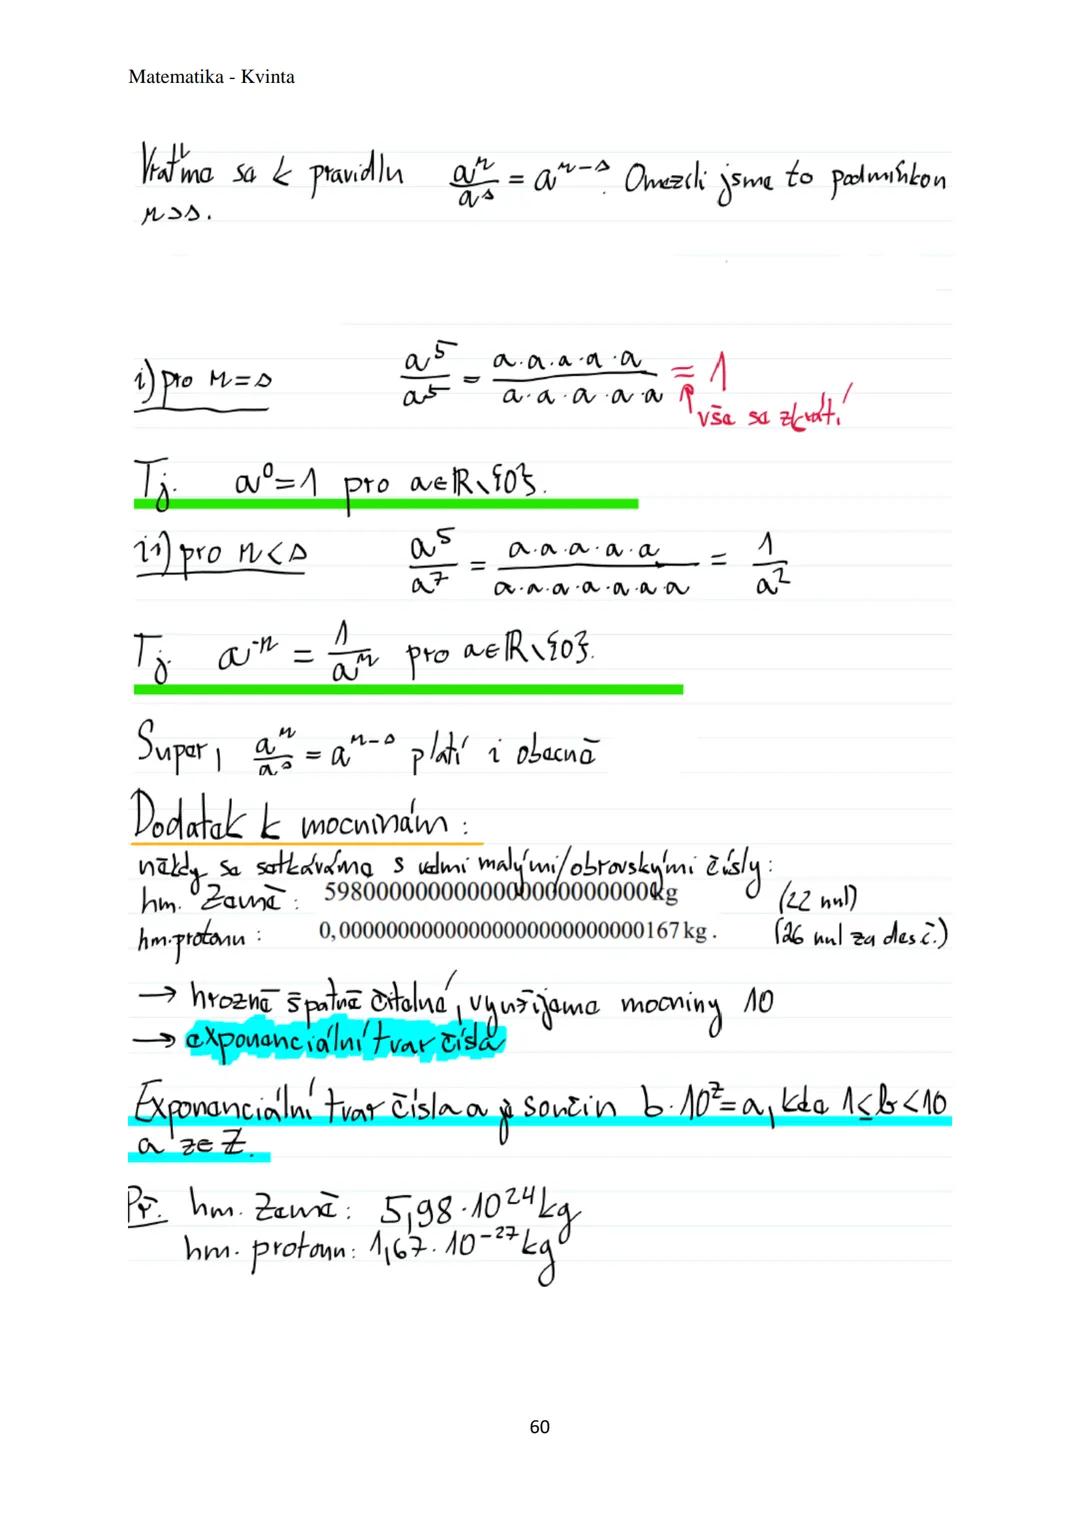 Matematika - Kvinta
Vraťme se k pravidlu a^r/a^s = a^(r-s). Omezili jsme to podmínkou
r>s.
i) pro r=s a^5/a^5 = a·a·a·a·a/a·a·a·a·a = 1
vše se zkrátí
Tj. a^0=1 pro a∈ℝ∖{0}.
ii) pro r<s a^5/a^7 = a·a·a·a·a/a·a·a·a·a·a·a = 1/a^2
Tj. a^-n = 1/a^n pro a∈ℝ∖{0}.
Super, a^r/a^s = a^(r-s) platí i obecně
Dodatek k mocninám:
někdy se setkáváme s velmi malými/obrovskými čísly:
hm. Země: 5980000000000000000000000kg (22 nul)
hm. protonu: 0,00000000000000000000000000167 kg. (26 nul za des.č.)
→ hrozně špatně čitelné, využijeme mocniny 10
→ exponenciální tvar čísla
Exponenciální tvar čísla a je součin b·10^z=a, kde 1≤b<10
a z∈ℤ.
Př. hm. Země: 5,98·10^24 kg
hm. protonu: 1,67·10^-27 kg
60